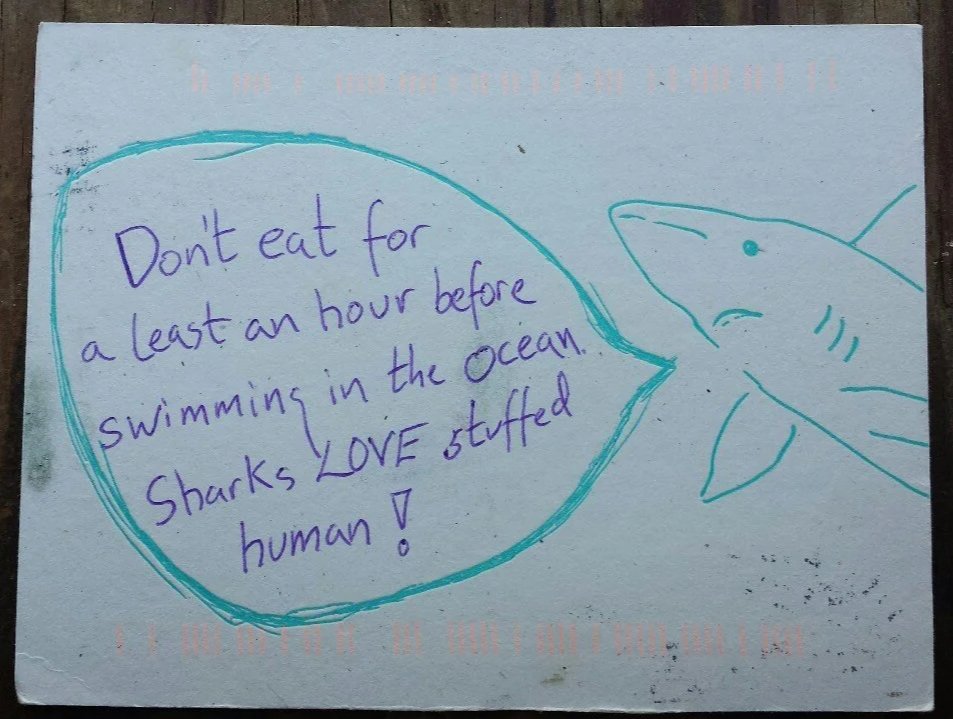 Don't eat for
a least an hour before
swimming in the ocean.
Sharks LOVE stuffed
human!